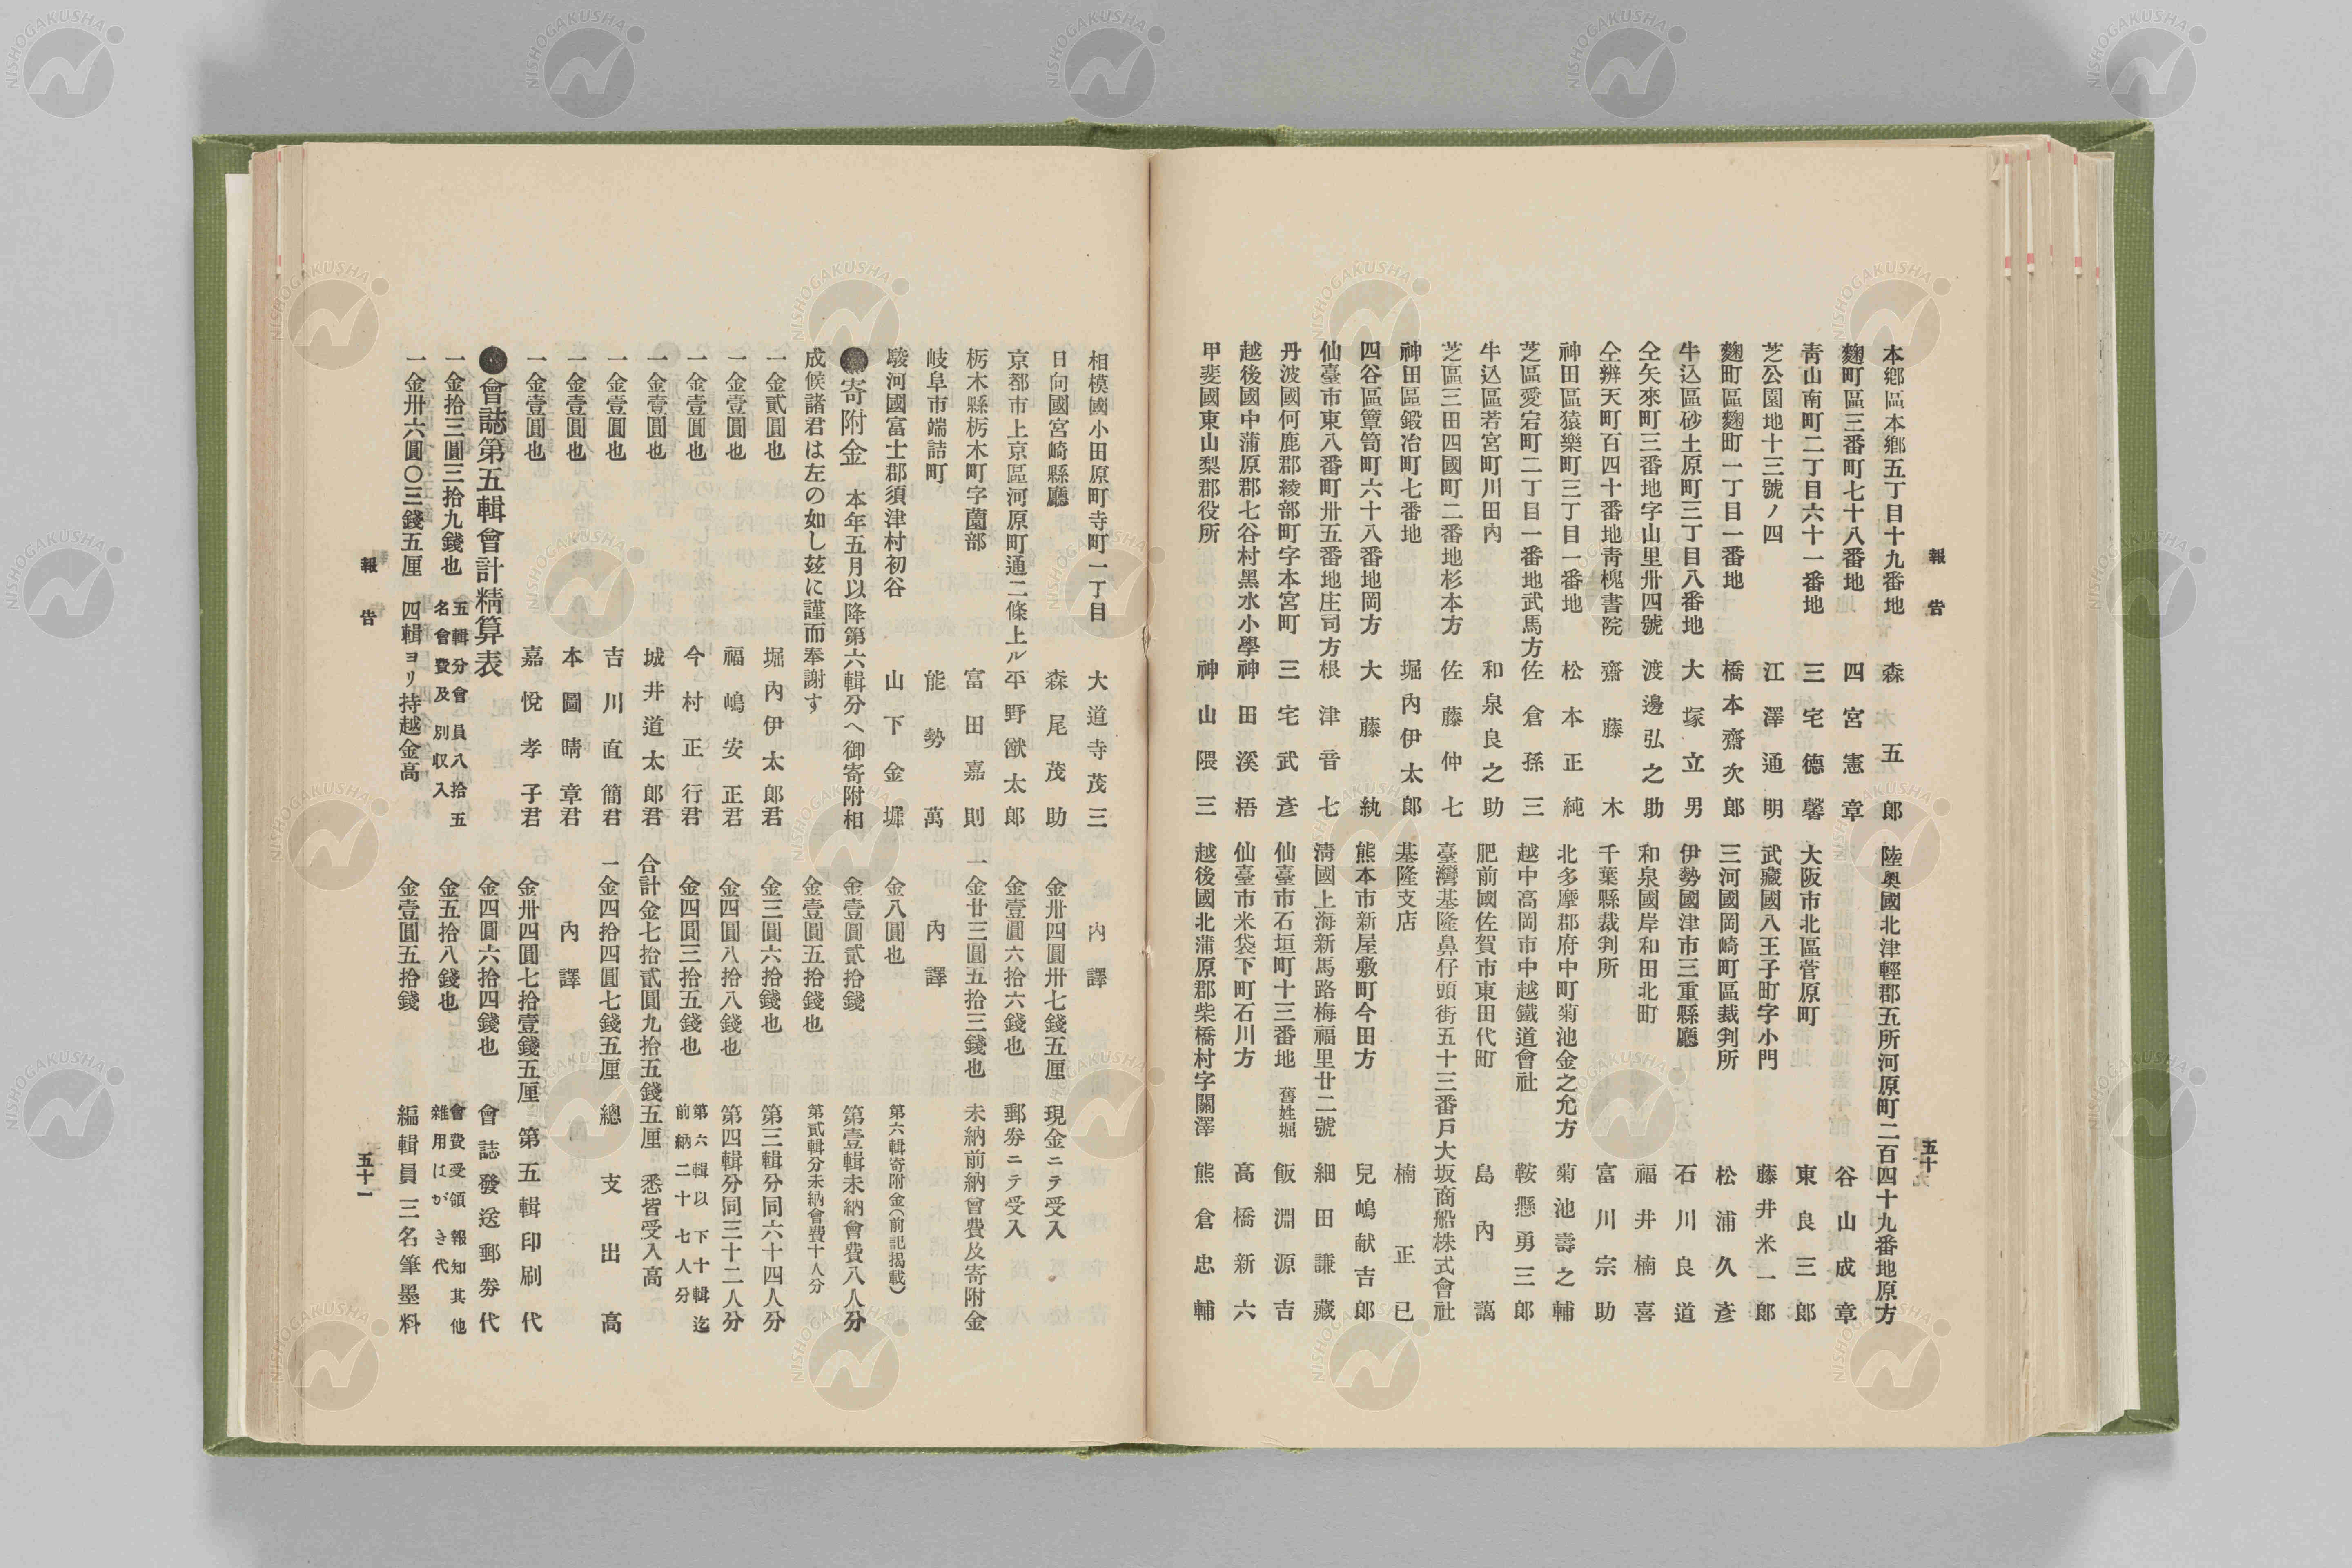 報告
五十
本鄕區本鄕五丁目十九番地 森五郎
麴町區三番町七十八番地 四宮憲章
靑山南町二丁目六十一番地 三宅德馨
芝公園地十三號ノ四 江澤通明
麴町區麴町一丁目一番地 橋本齋次郎
牛込區砂土原町三丁目八番地 大塚立男
仝矢來町三番地字山里卅四號 渡邊弘之助
仝辨天町百四十番地靑槐書院 齋藤木
神田區猿樂町三丁目一番地 松本正純
芝區愛宕町二丁目一番地武馬方 佐倉孫三
牛込區若宮町川田內 和泉良之助
芝區三田四國町二番地杉本方 佐藤仲七
神田區鍛冶町七番地 堀內伊太郎
四谷區簞笥町六十八番地岡方 大藤紈
仙臺市東八番町卅五番地庄司方 根津音七
丹波國何鹿郡綾部町字本宮町 三宅武彥
越後國中蒲原郡七谷村黑水小學 神田溪梧
甲斐國東山梨郡役所 神山隈三
陸奧國北津輕郡五所河原町二百四十九番地原方
谷山成章
大阪市北區菅原町 東良三郎
武藏國八王子町字小門 藤井米一郎
三河國岡崎町區裁判所 松浦久彥
伊勢國津市三重縣廳 石川良道
和泉國岸和田北町 福井楠喜
千葉縣裁判所 富川宗助
北多摩郡府中町菊池金之允方 菊池壽之輔
越中高岡市中越鐵道會社 鞍懸勇三郎
肥前國佐賀市東田代町 島內藹
臺灣基隆鼻仔頭街五十三番戶大坂商船株式會社
基隆支店 楠正已
熊本市新屋敷町今田方 兒嶋献吉郎
淸國上海新馬路梅福里廿二號 細田謙藏
仙臺市石垣町十三番地 舊姓堀 飯淵源吉
仙臺市米袋下町石川方 高橋新六
越後國北蒲原郡柴橋村字關澤 熊倉忠輔
相模國小田原町寺町一丁目 大道寺茂三
日向國宮崎縣廳 森尾茂助
京都市上京區河原町通二條上ル 平野猷太郎
栃木縣栃木町字薗部 富田嘉則
岐阜市端詰町 能勢萬
駿河國富士郡須津村初谷 山下金墀
●寄附金 本年五月以降第六輯分へ御寄附相
成候諸君は左の如し玆に謹而奉謝す
一金貳圓也 堀內伊太郎君
一金壹圓也 福嶋安正君
一金壹圓也 今村正行君
一金壹圓也 城井道太郎君
一金壹圓也 吉川直簡君
一金壹圓也 本圖晴章君
一金壹圓也 嘉悅孝子君
●會誌第五輯會計精算表
一金拾三圓三拾九錢也 五輯分會員八拾五名會費及別収入
一金卅六圓〇三錢五厘 四輯ヨリ持越金高
內譯
金卅四圓卅七錢五厘 現金ニテ受入
金壹圓六拾六錢也 郵券ニテ受入
一金廿三圓五拾三錢也 未納前納會費及寄附金
內譯
金八圓也 第六輯寄附金(前記揭載)
金壹圓貳拾錢 第壹輯未納會費八人分
金壹圓五拾錢也 第貳輯分未納會費十人分
金三圓六拾錢也 第三輯分同六十四人分
金四圓八拾八錢也 第四輯分同三十二人分
金四圓三拾五錢也 第六輯以下十輯迄前納二十七人分
合計金七拾貳圓九拾五錢五厘 悉皆受入高
一金四拾四圓七錢五厘 總支出高
內譯
金卅四圓七拾壹錢五厘 第五輯印刷代
金四圓六拾四錢也 會誌發送郵券代
金五拾八錢也 會費受領報知其他雜用はがき代
金壹圓五拾錢 編輯員三名筆墨料
報告
五十一
NISHOGAKUSHA